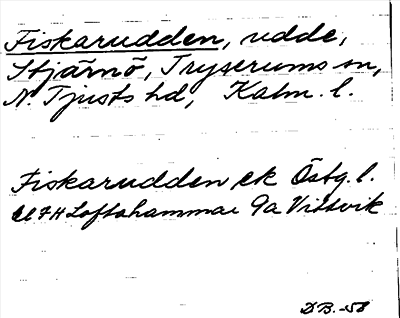 Fiskarudden, udde,
Stjärnö, Tryserums sn,
N. Tjusts hd, Kalm. l.
Fiskarudden ek Östg. l.
Loftahammar 9a Vittvik
DB.-58